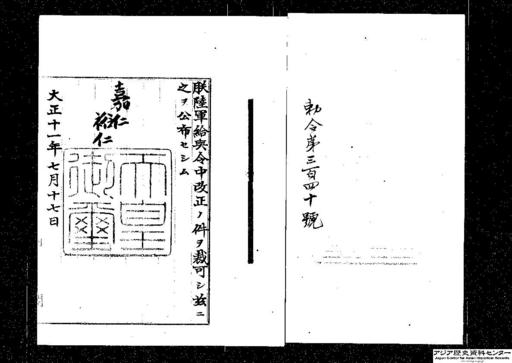 勅令第三百四十號
朕陸軍給與令中改正ノ件ヲ裁可シ茲ニ
之ヲ公布セシム
嘉仁
裕仁
天皇御璽
大正十一年七月十七日
アジア歴史資料センター
Japan Center for Asian Historical Records